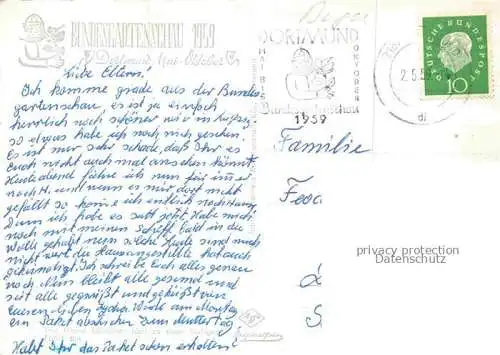 BUNDESGARTENSCHAU 1959
Dortmund Mai-Oktober
Liebe Eltern!
Ich komme grade aus der Bundes
gartenschau, es ist ja einfach
herrlich noch schöner wie in
so etwas habe ich noch nie gesehen.
Es ist nur sehr schade, daß Ihr es
Euch nicht auch mal ansehen könnt.
Heute abend fahre ich nun für immer
nach H. und wenn es mir dort nicht
gefällt so komme ich endlich nach Haus,
Denn ich habe es satt jetzt. Habe mich
noch mit meinem bald in die
Wolle gehabt nun solche Leute sind mich
nicht wert die Hausangestellte hat auch
gekündigt. Ich schreibe Euch alles genau
noch. Nun bleibt alle gesund und
seit alle gegrüßt und geküßt von
Eueren Werde am Montag
ein Paket abschicken zum Muttertag
Habt Ihr das Paket schon erhalten!
DORTMUND
MAI BIS
OKTOBER
Bundesgartenschau
1959
2.5.5
DEUTSCHE BUNDESPOST
10
Familie
privacy protection
Datenschutz